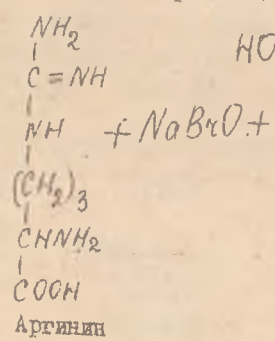 NH₂
HO
C = NH
NH + NaBrO. +
(CH₂)₃
CHNH₂
COOH
Аргинин